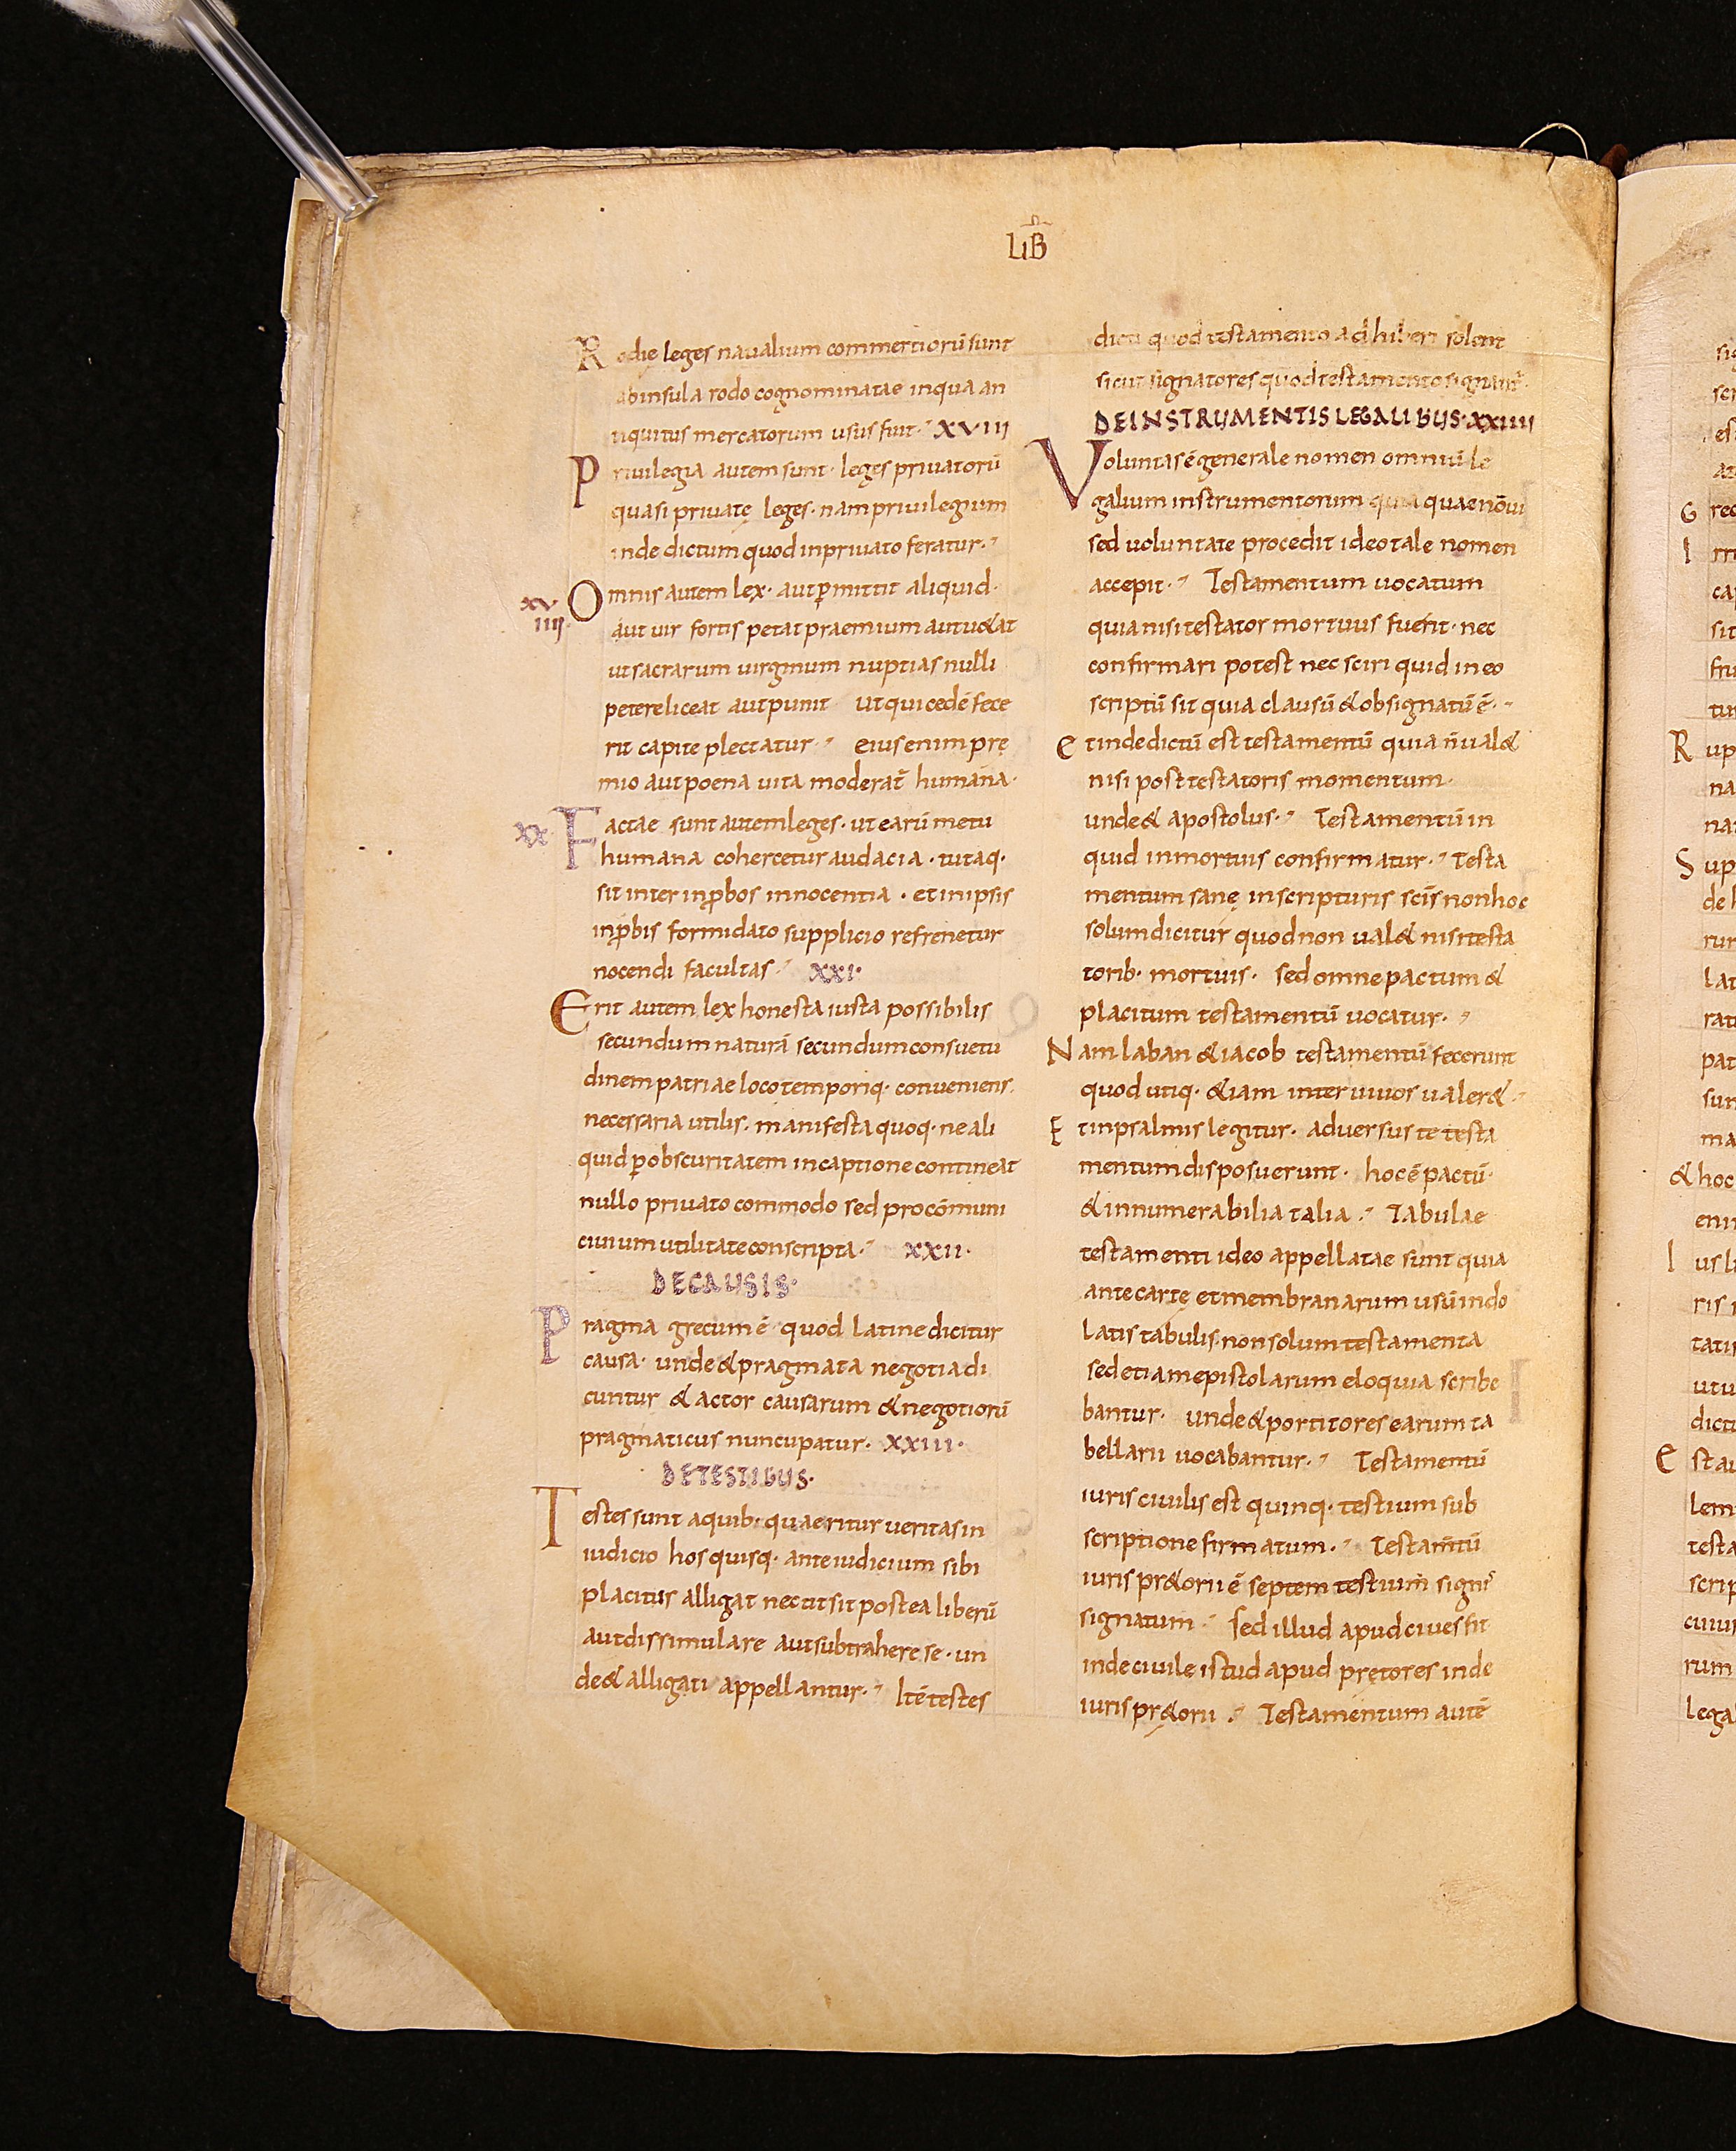 LIB
Rodię leges naualium commertiorū sunt
ab insula rodo cognominatae in qua an
tiquitus mercatorum usus fuit · XVIII
Priuilegia autem sunt · leges priuatorū
quasi priuatę leges · nam priuilegium
inde dictum quod in priuato feratur ·
xv
iiii
Omnis autem lex · aut p̄mittit aliquid ·
aut uir fortis petat praemium aut u&at
ut sacrarum uirginum nuptias nulli
petere liceat aut punit ut qui cedē fece
rit capite plectatur · eius enim prę
mio aut poena uita moderat̄ humana ·
xx
Factae sunt autem leges · ut earū metu
humana cohercetur audacia · tutaq·
sit inter inp̄bos innocentia · et in ipsis
inp̄bis formidato supplicio refrenetur
nocendi facultas · XXI·
Erit autem lex honesta iusta possibilis
secundum naturā secundum consuetu
dinem patriae loco temporiq· conueniens ·
necessaria utilis · manifesta quoq· ne ali
quid p̄ obscuritatem in captione contineat
nullo priuato commodo sed pro cōmuni
ciuium utilitate conscripta · XXII·
DE CAUSIS·
Pragma grecum ē quod latine dicitur
causa · unde & pragmata negotia di
cuntur & actor causarum & negotiorū
pragmaticus nuncupatur · XXIII·
DE TESTIBUS·
Testes sunt a quib· quaeritur ueritas in
iudicio hos quisq· ante iudicium sibi
placitus alligat nec ut sit postea liberū
aut dissimulare aut subtrahere se · un
de & alligati appellantur · Itē testes
dicti quod testamento adhiberi solent
sicut signatores quod testamento signant̄
DE INSTRUMENTIS LEGALIBUS · XXIIII
Voluntas ē generale nomen omniū le
galium instrumentorum quia quae nō ui
sed uoluntate procedit ideo tale nomen
accepit · Testamentum uocatum
quia nisi testator mortuus fuerit · nec
confirmari potest nec sciri quid in eo
scriptū sit quia clausū & obsignatū ē ·
Et inde dictū est testamentū quia n̄ ual&
nisi post testatoris momentum ·
unde & apostolus · Testamentū in
quid in mortuis confirmatur · Testa
mentum sanę in scripturis sc̄is non hoc
solum dicitur quod non ual& nisi testa
torib· mortuis · sed omne pactum &
placitum testamentū uocatur ·
Nam laban & iacob testamentū fecerunt
quod utiq· &iam inter uiuos ualer& ·
Et in psalmis legitur · aduersus te testa
mentum disposuerunt · hoc ē pactū ·
& innumerabilia talia · Tabulae
testamenti ideo appellatae sunt quia
ante cartę et membranarum usū in do
latis tabulis · non solum testamenta
sed etiam epistolarum eloquia scribe
bantur · unde & portitores earum ta
bellarii uocabantur · Testamentū
iuris ciuilis est quinq· testium sub
scriptione firmatum · Testam̄tū
iuris pr&orii ē septem testium signis
signatum · Sed illud apud ciues fit
inde ciuile istud apud pretores inde
iuris pr&orii · Testamentum autē